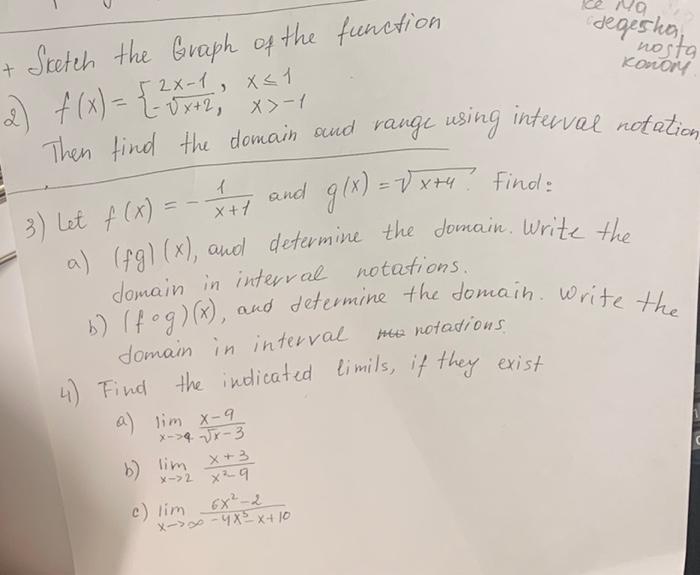 ке Ма
degesha,
nosta
konom
+ Sketch the Graph of the function
2) f(x) = { 2x-1, x ≤ 1
-√x+2, x > -1
Then find the domain and range using interval notation
3) Let f(x) = - 1/x+1 and g(x) = √x+4. Find:
a) (fg)(x), and determine the domain. Write the
domain in interval notations.
b) (f∘g)(x), and determine the domain. Write the
domain in interval notations.
4) Find the indicated limils, if they exist
a) lim x->9 x-9/√x-3
b) lim x->2 x+3/x²-9
c) lim x->∞ 6x²-2/-4x⁵-x+10